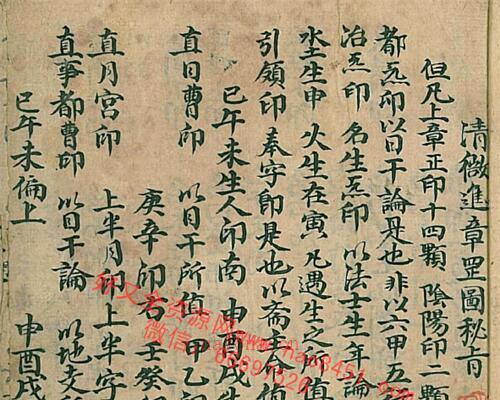 清微進章罡圖秘旨
但凡上章正印十四顆 陰陽印二顆
都炁印以日干論是也 非以六甲五
治炁印 名生炁印 以法士生年論
水土生申 火生在寅 凡遇生之
引領印 奉字印是也以齋
巳午未生人印南 申酉戌
直日曹印 以日干所值 甲乙
庚辛印 壬癸
直月宮印 上半月印上半字
直事都曹印 以日干論 以地支
巳午未偏上 申酉戌